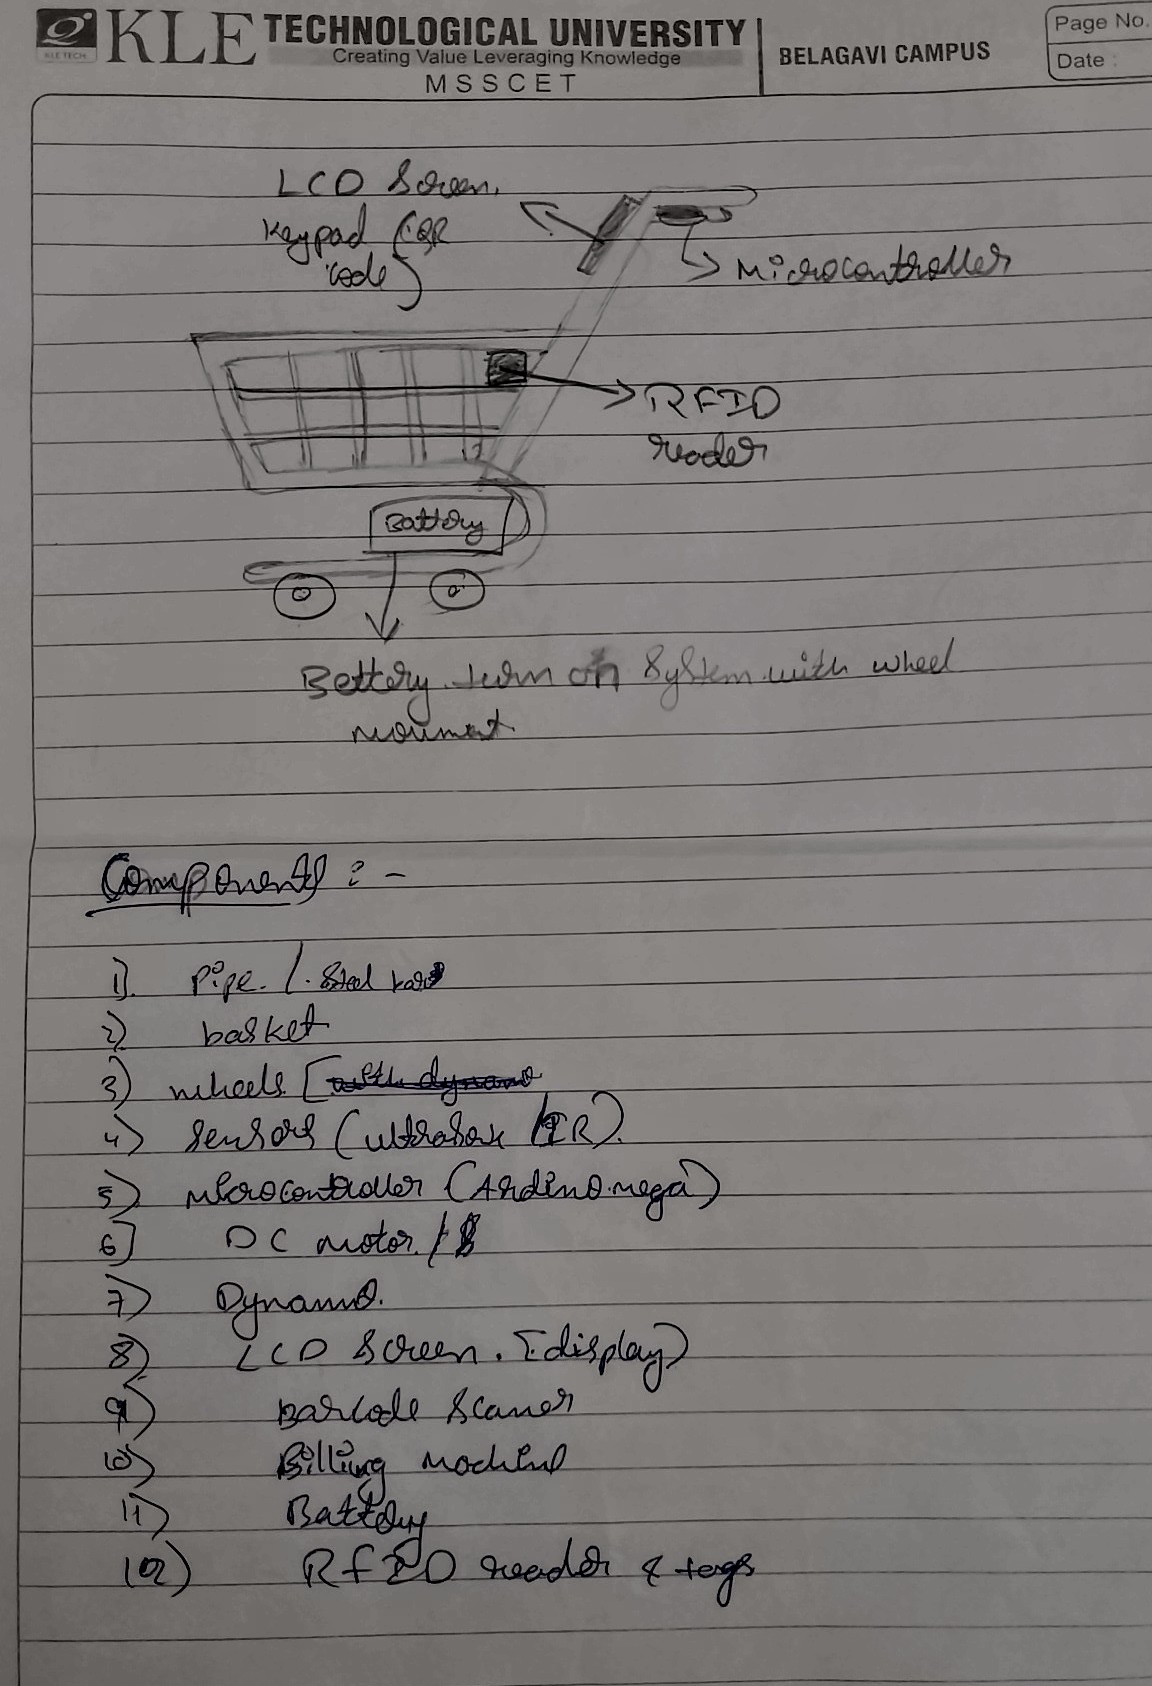 KLE TECH
KLE TECHNOLOGICAL UNIVERSITY
Creating Value Leveraging Knowledge
MSSCET
BELAGAVI CAMPUS
Page No.
Date :
LCD Screen,
Keypad (QR
code)
Microcontroller
RFID
reader
Battery
Bettery turn on System with wheel
Components : -
1). Pipe. /. Steel
2) basket
3) wheels [with dynamo
4) Sensors ( /IR).
5) Microcontroller (Ardino mega)
6] DC motor /
7) Dynamo.
8) LCD Screen. [display)
9) Barcode Scaner
10) Billing
11) Battery
12) RFID reader & tags